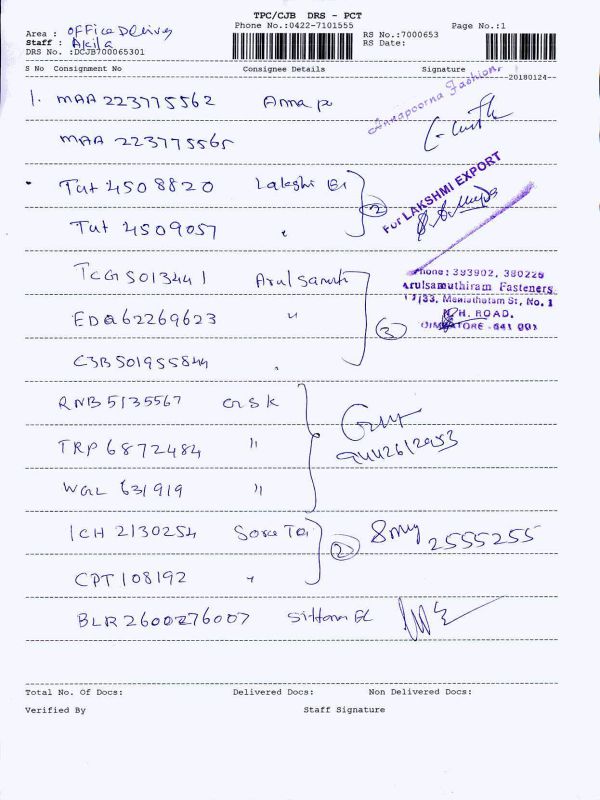 TPC/CJB DRS - PCT
Phone No.:0422-7101555
Page No.:1
Area : Office Delivery
Staff : Akila
DRS No. :DCJB700065301
RS No.:7000653
RS Date:
S No Consignment No Consignee Details Signature
--20180124--
1. MAA 223775562 Anna
Annapoorna Fashion
MAA 223775565
Tut 4508820 Lakshi
For LAKSHMI EXPORT
2
Tut 4509057 "
TCG 5013441
Phone: 393902, 380225
Arulsamuthiram Fasteners
EDQ 62269623 "
H. ROAD.
3
C3B 501955844 "
RNB 5135567 GSK
TRP 6872484 "
WGL 631919 "
ICH 2130254
2
2555255
CPT 108192 "
BLR 2600276007
Total No. Of Docs: Delivered Docs: Non Delivered Docs:
Verified By Staff Signature